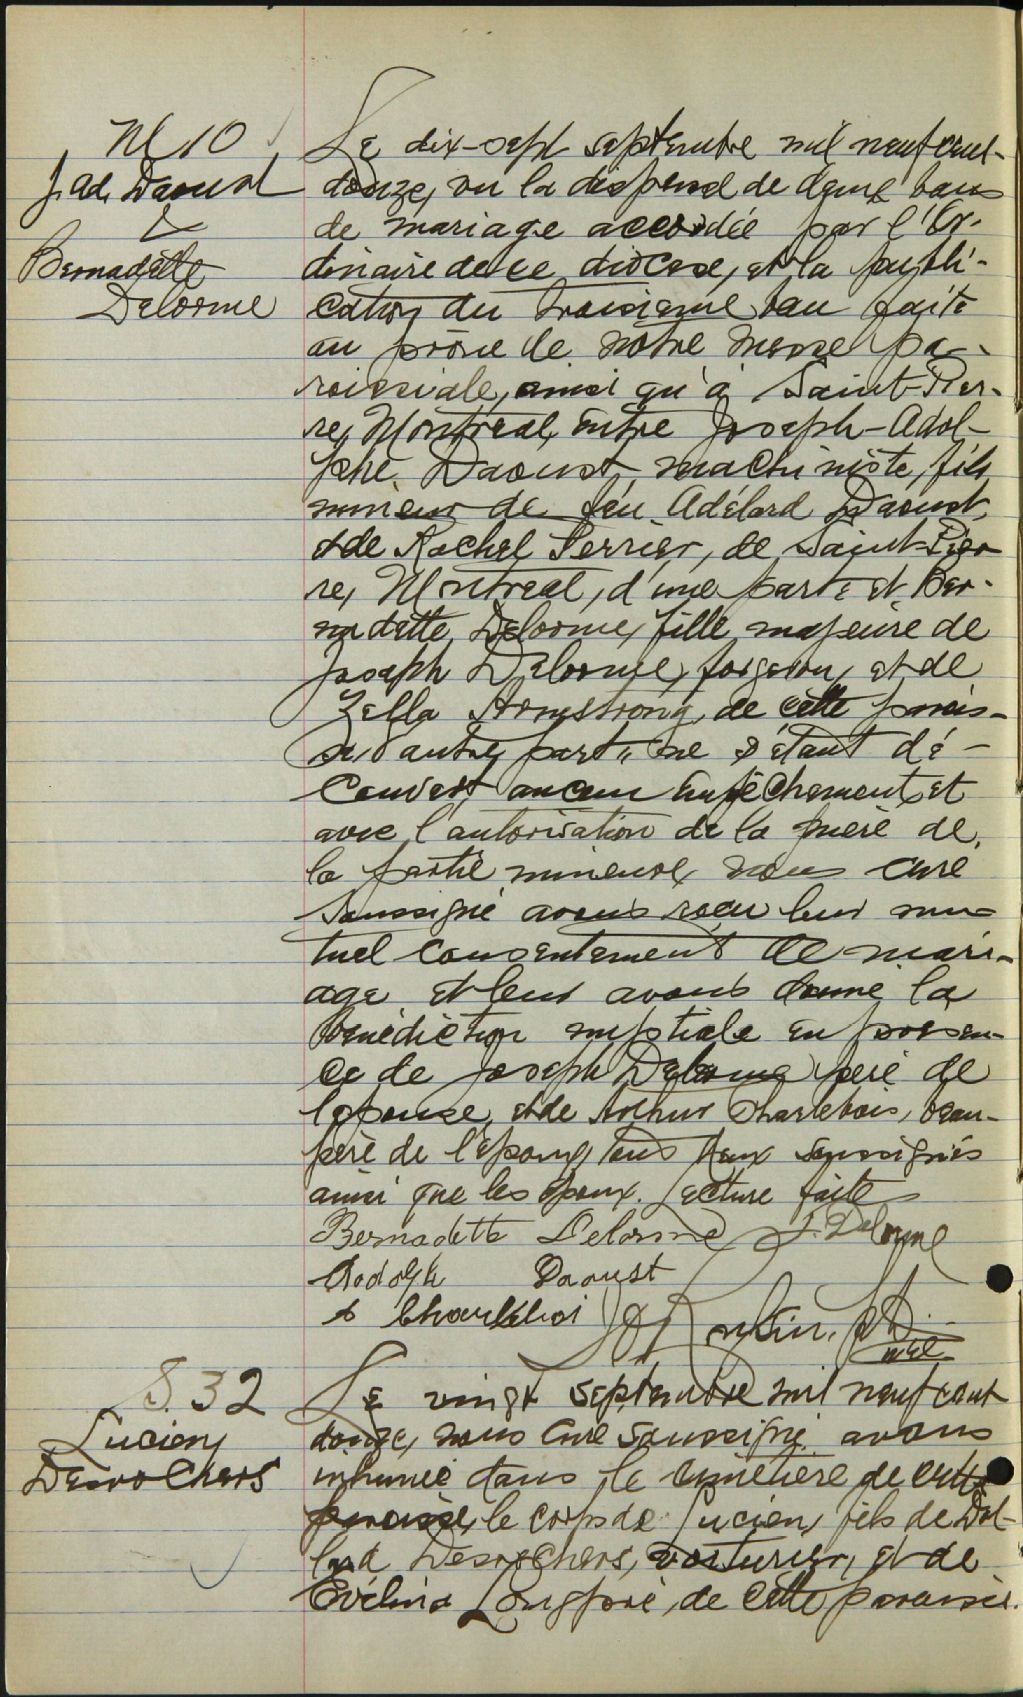 M. 10
J. Ad. Daoust
&
Bernadette
Delorme
Le dix-sept septembre mil neuf cent-
douze, vu la dispense de deux bans
de mariage accordée par l'Or-
dinaire de ce diocèse, et la publi-
cation du troisième ban faite
au prône de notre messe pa-
roissiale, ainsi qu'à Saint-Pier-
re, Montréal, entre Joseph-Adol-
phe Daoust, machiniste, fils
mineur de feu Adélard Daoust,
& de Rachel Perrier, de Saint-Pier-
re, Montréal, d'une part, et Ber-
nadette Delorme, fille majeure de
Joseph Delorme, forgeron, et de
Zella Armstrong, de cette parois-
se, d'autre part, ne s'étant dé-
couvert aucun empêchement, et
avec l'autorisation de la mère de
la partie mineure, nous curé
soussigné avons reçu leur mu-
tuel consentement de mari-
age et leur avons donné la
bénédiction nuptiale en présen-
ce de Joseph Delorme père de
l'épouse, et de Arthur Charlebois, beau-
père de l'époux, tous deux soussignés
ainsi que les époux. Lecture faite
Bernadette Delorme J. Delorme
Adolphe Daoust
A Charlebois
Ptre
curé
S. 32
Lucien
Desrochers
Le vingt septembre mil neuf cent
douze, nous curé soussigné avons
inhumé dans le cimetière de cette
paroisse, le corps de Lucien, fils de Dol-
lard Desrochers, voiturier, et de
Evelina Longpré, de cette paroisse.